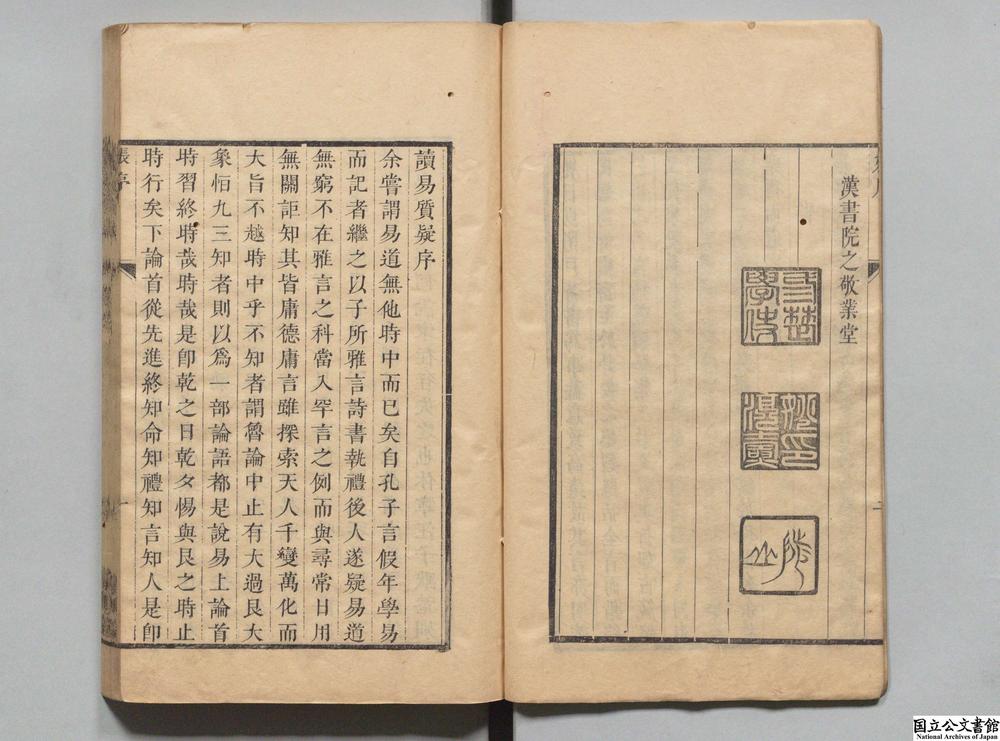 漢書院之敬業堂
讀易質疑序
余嘗謂易道無他時中而已矣自孔子言假年學易
而記者繼之以子所雅言詩書執禮後人遂疑易道
無窮不在雅言之科當入罕言之例而與尋常日用
無關詎知其皆庸德庸言雖探索天人千變萬化而
大旨不越時中乎不知者謂魯論中止有大過艮大
象恒九三知者則以爲一部論語都是說易上論首
時習終時哉時哉是卽乾之日乾夕惕與艮之時止
時行矣下論首從先進終知命知禮知言知人是卽
張序
一
国立公文書館
National Archives of Japan